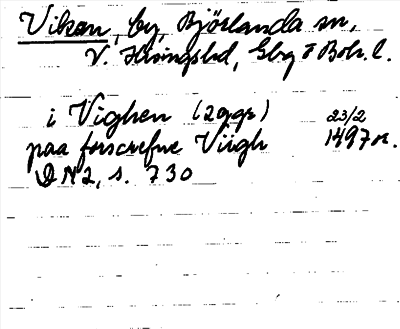 Viken, by, Björlanda sn,
V. Hisings hd, Gbg o Boh. l.
i Vighen (2 ggr) 23/2
paa forscrefne Viigh 1497 or.
DN 2, s. 730